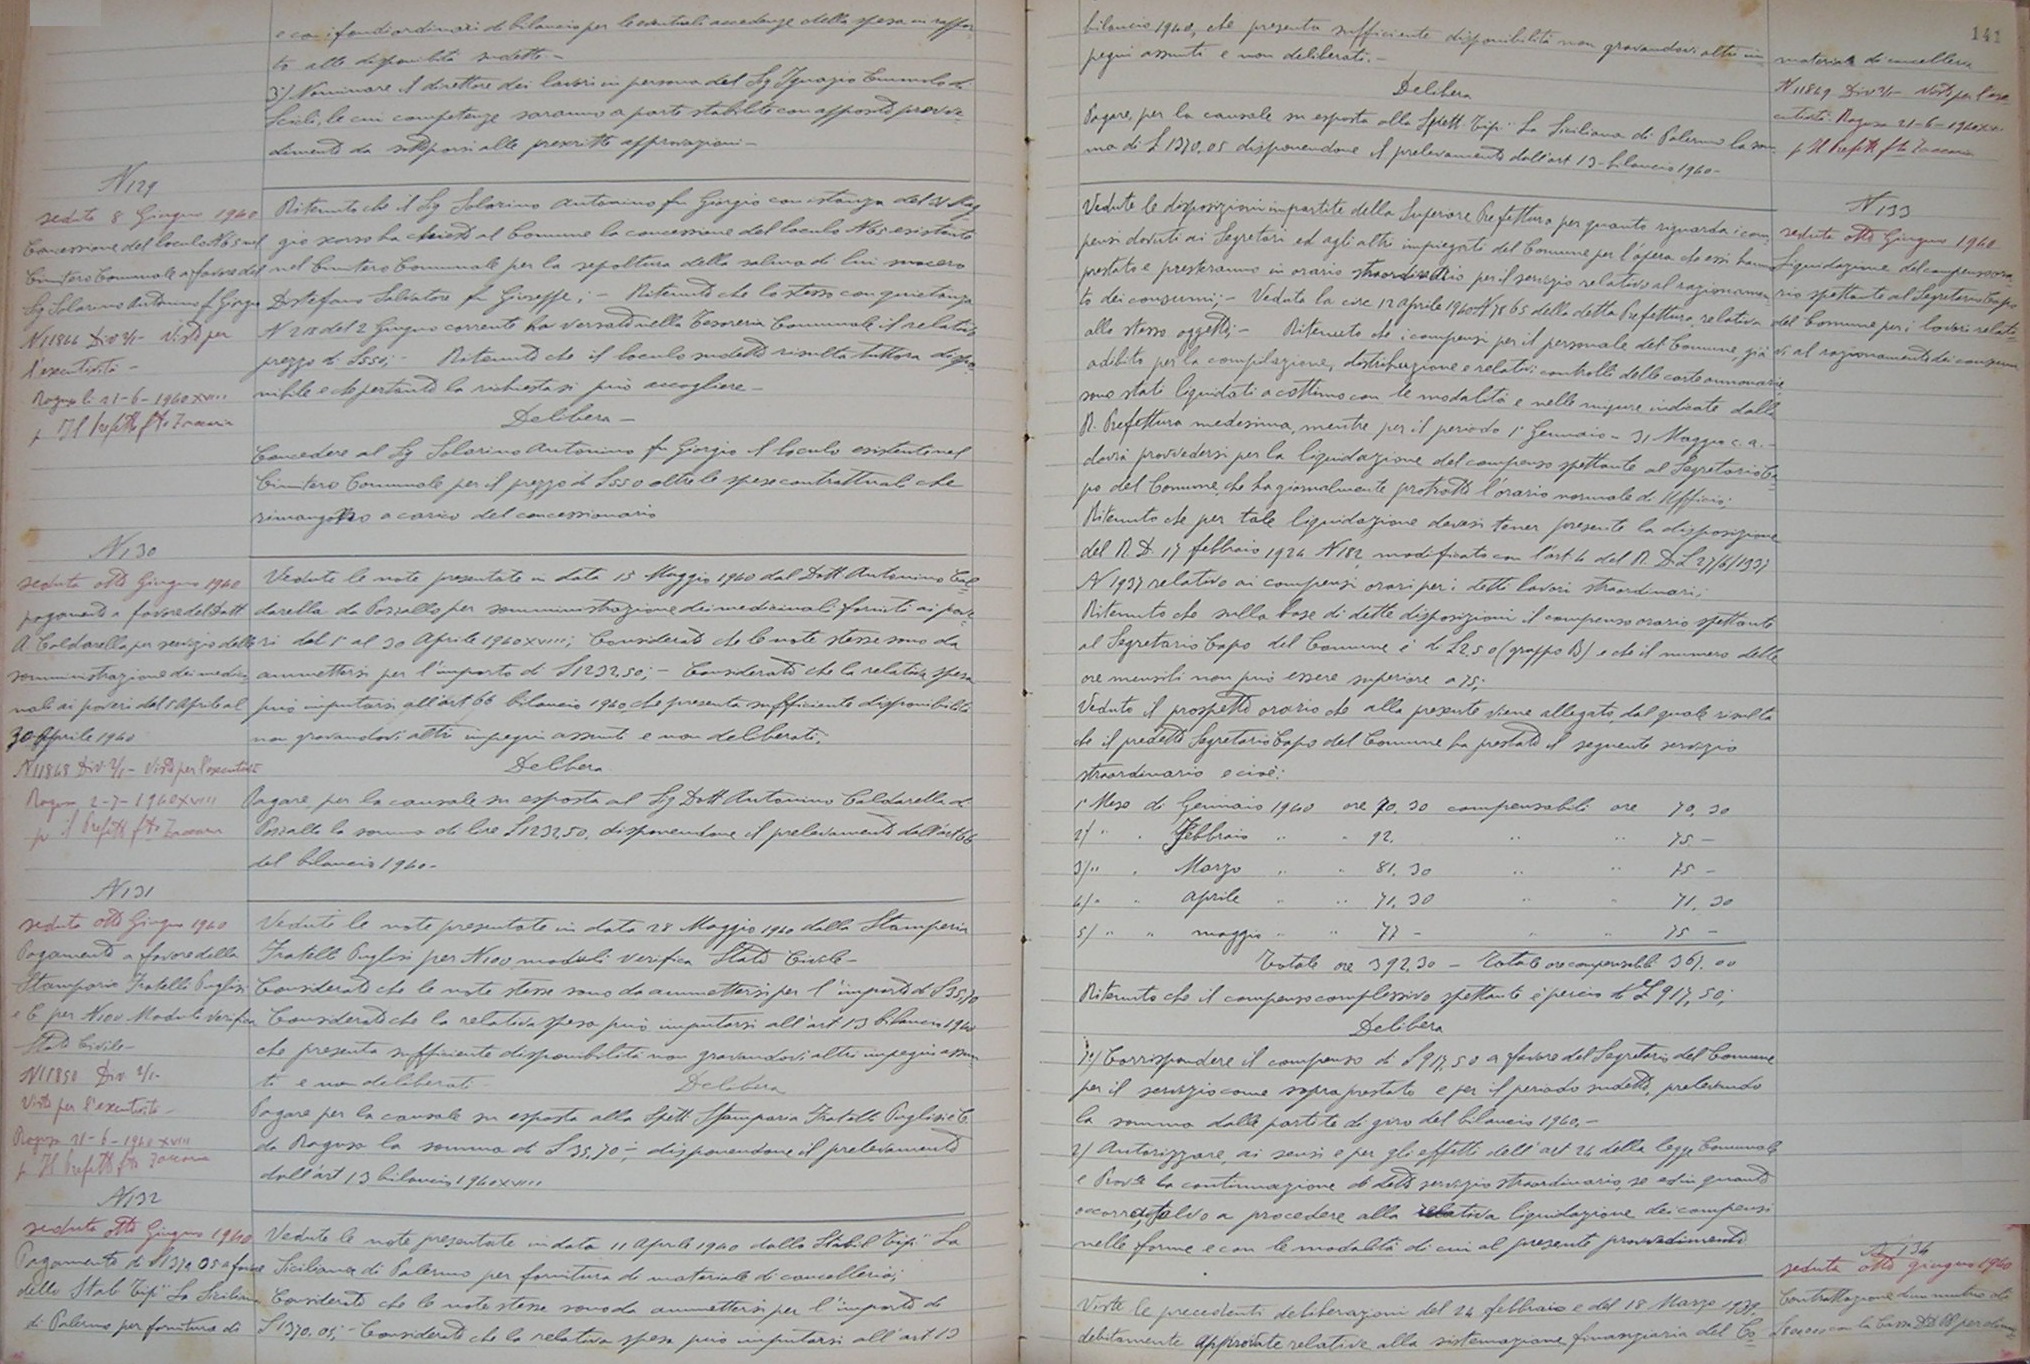 e con i fondi ordinari di bilancio per le eventuali eccedenze della spesa in rappor-
to alle disponibilità sudette.-
3°) Nominare il direttore dei lavori in persona del Sig Ignazio Emmolo di
Scicli, le cui competenze saranno a parte stabilite con apposito provve-
dimento da sottoporsi alle prescritte approvazioni-
N 129
seduta 8 Giugno 1940
Concessione del loculo N 65 nel
Cimitero Comunale a favore del
Sig Solarino Antonino fu Giorgio
N 11866 Div 2/1- Visto per
l'esecutività-
Ragusa li 21-6-1940 XVIII
p Il Prefetto fto Zaccaria
Ritenuto che il Sig Solarino Antonino fu Giorgio con istanza del 31 Mag
gio scorso ha chiesto al Comune la concessione del loculo N 65 esistente
nel Cimitero Comunale per la sepoltura della salma di lui suocero
Distefano Salvatore fu Giuseppe; - Ritenuto che lo stesso con quietanza
N 218 del 2 Giugno corrente ha versato nella Tesoreria Comunale il relativo
prezzo di £550;- Ritenuto che il loculo sudetto risulta tuttora dispo
nibile e che pertanto la richiesta si può accogliere-
Delibera-
Concedere al Sig Solarino Antonino fu Giorgio il loculo esistente nel
Cimitero Comunale per il prezzo di £550 oltre le spese contrattuali che
rimangono a carico del concessionario
N 130
seduta otto Giugno 1940
pagamento a favore del Dott
A. Caldarella per servizio della
somministrazione dei medici
nali ai poveri dal 1 Aprile al
30 Aprile 1940
N 11868 Div 2/1- Visto per l'esecutività
Ragusa 2-7-1940 XVIII
p il Prefetto fto Zaccaria
Vedute le note presentate in data 15 Maggio 1940 dal Dott Antonino Cal-
darella da Pozzallo per somministrazione dei medicinali forniti ai pove-
ri dal 1° al 30 Aprile 1940 XVIII; Considerato che le note stesse sono da
ammettersi per l'importo di £1232.50;- Considerato che la relativa spesa
può imputarsi all'art 66 bilancio 1940 che presenta sufficiente disponibilità
non gravandovi altri impegni assunti e non deliberati.
Delibera
Pagare per la causale su esposta al Sig Dott Antonino Caldarella di
Pozzallo la somma di lire £1232,50, disponendone il prelevamento dall'art 66
del bilancio 1940-
N 131
seduta otto Giugno 1940
Pagamento a favore della
Stamperia Fratelli Puglisi
e C per N 100 Moduli verifica
Stato Civile-
N 11850 Div 2/1-
Visto per l'esecutività-
Ragusa 21-6-1940 XVIII
p Il Prefetto fto Zaccaria
Vedute le note presentate in data 28 Maggio 1940 dalla Stamperia
Fratelli Puglisi per N 100 moduli verifica Stato Civile-
Considerato che le note stesse sono da ammettersi per l'importo di £35,70
Considerato che la relativa spesa può imputarsi all'art 13 bilancio 1940
che presenta sufficiente disponibilità non gravandovi altri impegni assun
ti e non deliberati- Delibera
Pagare per la causale su esposta alla Spett. Stamperia Fratelli Puglisi e C.
da Ragusa la somma di £35,70- disponendone il prelevamento
dall'art 13 bilancio 1940 XVIII
N 132
seduta otto Giugno 1940
Pagamento di £1370.05 a favore
dello Stab Tip "La Siciliana
di Palermo per fornitura di
Vedute le note presentate in data 11 Aprile 1940 dallo Stabil Tip " La
Siciliana di Palermo per fornitura di materiale di cancelleria;
Considerato che le note stesse sono da ammettersi per l'importo di
£1370.05;- Considerato che la relativa spesa può imputarsi all'art 13
141
bilancio 1940, che presenta sufficiente disponibilità non gravandovi altri im-
pegni assunti e non deliberati.-
Delibera
Pagare, per la causale su esposta alla Spett. Tip. La Siciliana di Palermo la som-
ma di £1370.05 disponendone il prelevamento dall'art 13- bilancio 1940-
materiale di cancelleria
N 11849 Div 2/1- Visto per l'ese-
cutività Ragusa 21-6-1940 XVIII
p Il Prefetto fto Zaccaria
Vedute le disposizioni impartite dalla Superiore Prefettura per quanto riguarda i com-
pensi dovuti ai Segretari ed agli altri impiegati del Comune per l'opera che essi hanno
prestato e presteranno in orario straordinario per il servizio relativo al razionamen
to dei consumi;- Veduta la circ 12 aprile 1940 N 7865 della detta Prefettura relativa
allo stesso oggetto;- Ritenuto che i compensi per il personale del Comune, già
adibito per la compilazione, distribuzione e relativi controlli delle carte annonarie
sono stati liquidati a cottimo con le modalità e nelle misure indicate dalla
R. Prefettura medesima, mentre per il periodo 1° Gennaio- 31 Maggio c.a.-
dovrà provvedersi per la liquidazione del compenso spettante al Segretario Ca-
po del Comune, che ha giornalmente protratto l'orario normale di Ufficio;
Ritenuto che per tale liquidazione devesi tener presente la disposizione
del R. D. 17 febbraio 1924 N 182, modificato con l'art. 4 del R. D. L 27/6/1937
N 1937 relativo ai compensi orari per i detti lavori straordinari;
Ritenuto che sulla base di dette disposizioni il compenso orario spettante
al Segretario Capo del Comune è di £2.50 (gruppo B) e che il numero delle
ore mensili non può essere superiore a 75;
Veduto il prospetto orario che alla presente viene allegato dal quale risulta
che il predetto Segretario Capo del Comune ha prestato il seguente servizio
straordinario e cioè:
1° Mese di Gennaio 1940 ore 70.30 compensabili ore 70,30
2/ " " Febbraio " " 92. " " 75 -
3/ " " Marzo " " 81.30 " " 75 -
4/ " " aprile " " 71.30 " " 71.30
5/ " " maggio " " 77 - " " 75 -
Totale ore 392.30 - Totale ore compensabili 367.00
Ritenuto che il compenso complessivo spettante è perciò di £ 917,50;
Delibera
1°) Corrispondere il compenso di £ 917,50 a favore del Segretario del Comune
per il servizio come sopra prestato e per il periodo sudetto, prelevando
la somma dalle partite di giro del bilancio 1940.-
2/ Autorizzare, ai sensi e per gli effetti dell'art 24 della legge Comunale
e Prov.le la continuazione di detto servizio straordinario, se ed in quanto
occorra, salvo a procedere alla relativa liquidazione dei compensi
nelle forme e con le modalità di cui al presente provvedimento
N 133
seduta otto Giugno 1940
Liquidazione del compenso ora-
rio spettante al Segretario Capo
del Comune per i lavori relati-
vi al razionamento dei consumi
Viste le precedenti deliberazioni del 24 febbraio e del 18 Marzo 1939.
debitamente approvate relative alla sistemazione finanziaria del Co
N 134
seduta otto giugno 1940
Contrattazione di un mutuo di
con la Cassa DD PP per